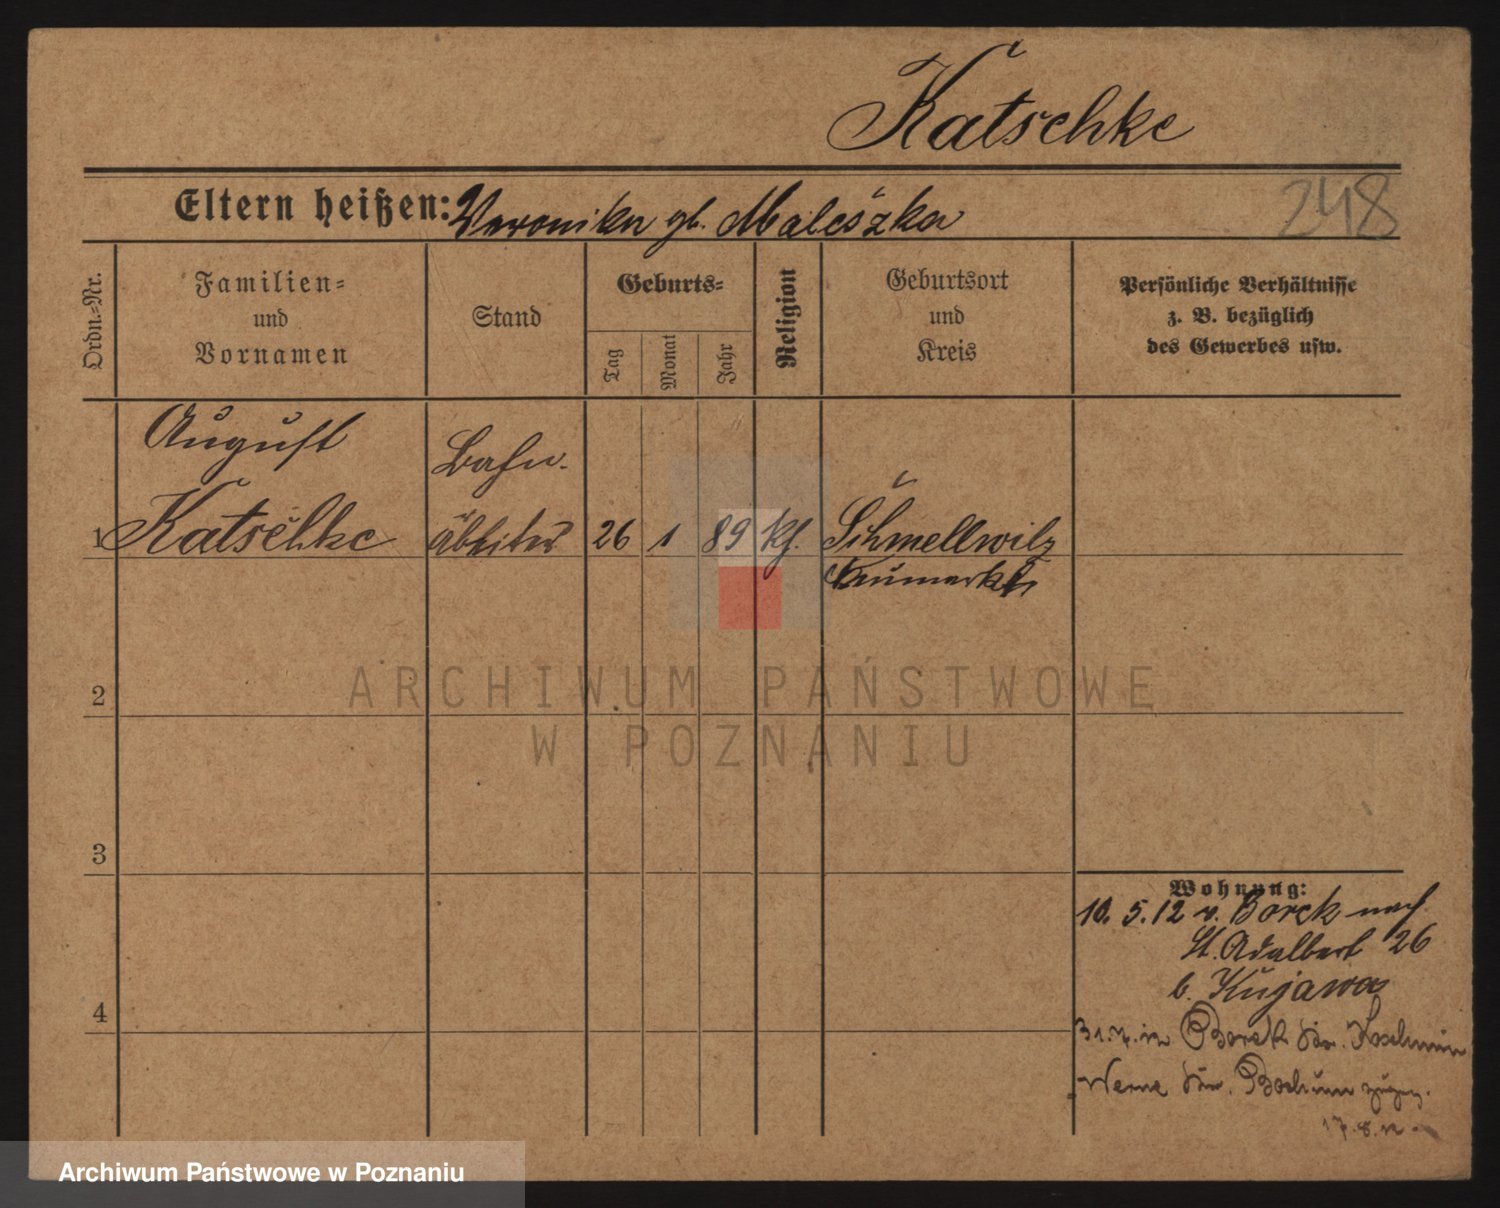 Katschke
Eltern heißen: Veronika gb. Maleszka
248
Ordn.-Nr.
Familien-
und
Vornamen
Stand
Geburts-
Tag
Monat
Jahr
Religion
Geburtsort
und
Kreis
Persönliche Verhältnisse
z. B. bezüglich
des Gewerbes usw.
August
Bahn-
1 Katschke arbeiter 26 1 89 kf. Schmellwitz
Neumarkt
2
3
4
Wohnung:
10. 5. 12 v. Borek nach
St. Adalbert 26
b. Kujawa
31.7.12 Borek Kr. Koschmin
Werne Kr. Bochum
17.8.12
ARCHIWUM PAŃSTWOWE
W POZNANIU
Archiwum Państwowe w Poznaniu